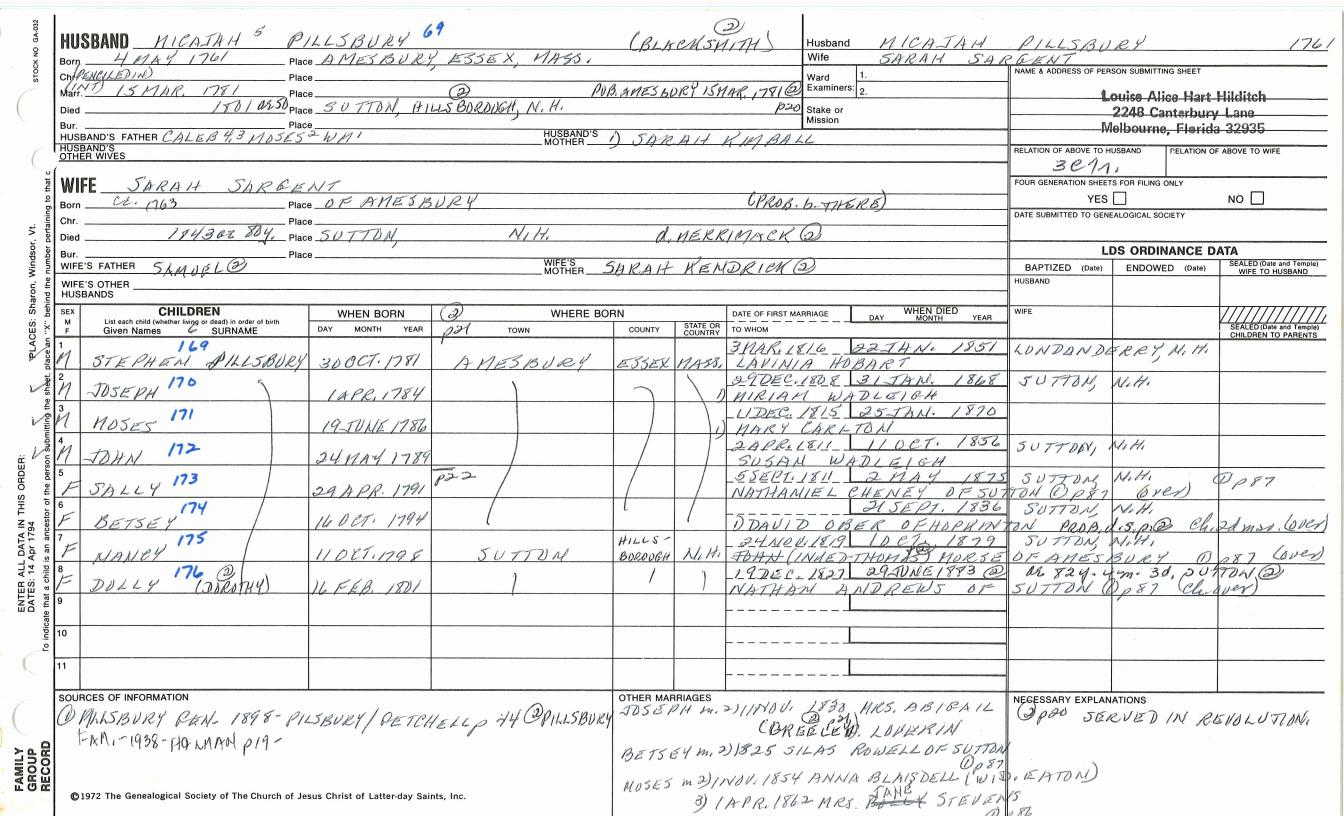 STOCK NO. GA-032
HUSBAND MICAJAH 5 PILLSBURY 69 (BLACKSMITH) ②
Born 4 MAY 1761 Place AMESBURY, ESSEX, MASS.
Chr. (PENCILED IN) Place
Marr. (INT) 15 MAR. 1781 Place ② PUB. AMESBURY 15 MAR, 1781 ② p20
Died 1801 or 50 Place SUTTON, HILLSBOROUGH, N.H.
Bur. Place
HUSBAND'S FATHER CALEB 4,3 MOSES 2 WM 1 HUSBAND'S MOTHER 1) SARAH KIMBALL
HUSBAND'S OTHER WIVES
Husband MICAJAH PILLSBURY 1761
Wife SARAH SARGENT
Ward Examiners: 1.
2.
Stake or Mission
NAME & ADDRESS OF PERSON SUBMITTING SHEET
Louise Alice Hart Hilditch
2248 Canterbury Lane
Melbourne, Florida 32935
RELATION OF ABOVE TO HUSBAND RELATION OF ABOVE TO WIFE
FOUR GENERATION SHEETS FOR FILING ONLY
YES NO
DATE SUBMITTED TO GENEALOGICAL SOCIETY
WIFE SARAH SARGENT
Born ca. 1763 Place OF AMESBURY (PROB. b. THERE)
Chr. Place
Died 1843 ae 80y. Place SUTTON, N.H. d. MERRIMACK ②
Bur. Place
WIFE'S FATHER SAMUEL ② WIFE'S MOTHER SARAH KENDRICK ②
WIFE'S OTHER HUSBANDS
LDS ORDINANCE DATA
BAPTIZED (Date) ENDOWED (Date) SEALED (Date and Temple) WIFE TO HUSBAND
HUSBAND
WIFE
SEALED (Date and Temple) CHILDREN TO PARENTS
SEX M F CHILDREN WHEN BORN ② WHERE BORN DATE OF FIRST MARRIAGE WHEN DIED
List each child (whether living or dead) in order of birth
Given Names 6 SURNAME DAY MONTH YEAR p21 TOWN COUNTY STATE OR COUNTRY TO WHOM DAY MONTH YEAR
1 M 169 STEPHEN PILLSBURY 30 OCT. 1781 AMESBURY ESSEX MASS. 3 MAR. 1816 22 JAN. 1851 LONDANDERRY, N.H.
LAVINIA HOBART
2 M JOSEPH 170 1 APR. 1784 29 DEC. 1808 31 JAN. 1868 SUTTON, N.H.
1) MIRIAM WADLEIGH
3 M MOSES 171 19 JUNE 1786 11 DEC. 1815 25 JAN. 1870
1) MARY CARLTON
4 M JOHN 172 24 MAY 1789 2 APR. 1811 11 OCT. 1856 SUTTON, N.H.
SUSAN WADLEIGH
5 F SALLY 173 29 APR. 1791 p22 5 SEPT. 1811 2 MAY 1875 SUTTON, N.H. ① p87
NATHANIEL CHENEY OF SUTTON ① p87 (over)
6 F BETSEY 174 16 OCT. 1794 21 SEPT. 1836 SUTTON, N.H.
1) DAVID OBER OF HOPKINTON PROB. d.s.p. ② (over)
7 F NANCY 175 11 OCT. 1798 SUTTON HILLS-BOROUGH N.H. 24 NOV. 1819 1 OCT. 1879 SUTTON, N.H.
MORSE OF AMESBURY ① p87 (over)
8 F DOLLY 176 (DOROTHY) ② 16 FEB. 1801 19 DEC. 1827 29 JUNE 1883 ② ae 82y. 4m. 3d. SUTTON ②
NATHAN ANDREWS OF SUTTON ① p87 (ch. over)
9
10
11
SOURCES OF INFORMATION
① PILLSBURY GEN. 1898 - PILSBURY/GETCHELL p 44 ② PILLSBURY
FAM. - 1938 - HOLMAN p19 -
OTHER MARRIAGES
JOSEPH m. 2) 1 NOV. 1838 MRS. ABIGAIL
(GREELEY) LOVERIN
BETSEY m. 2) 1825 SILAS ROWELL OF SUTTON
① p87
MOSES m 2) 1 NOV. 1854 ANNA BLAISDELL (WID. EATON)
3) 1 APR. 1862 MRS. JANE STEVENS
① p86
NECESSARY EXPLANATIONS
② p20 SERVED IN REVOLUTION.
©1972 The Genealogical Society of The Church of Jesus Christ of Latter-day Saints, Inc.
FAMILY GROUP RECORD
ENTER ALL DATA IN THIS ORDER:
DATES: 14 Apr 1794
PLACES: Sharon, Windsor, Vt.
To indicate that a child is an ancestor of the person submitting the sheet, place an "X" behind the number pertaining to that c